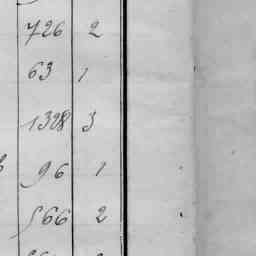 726 2
63 1
1328 3
96 1
566 2